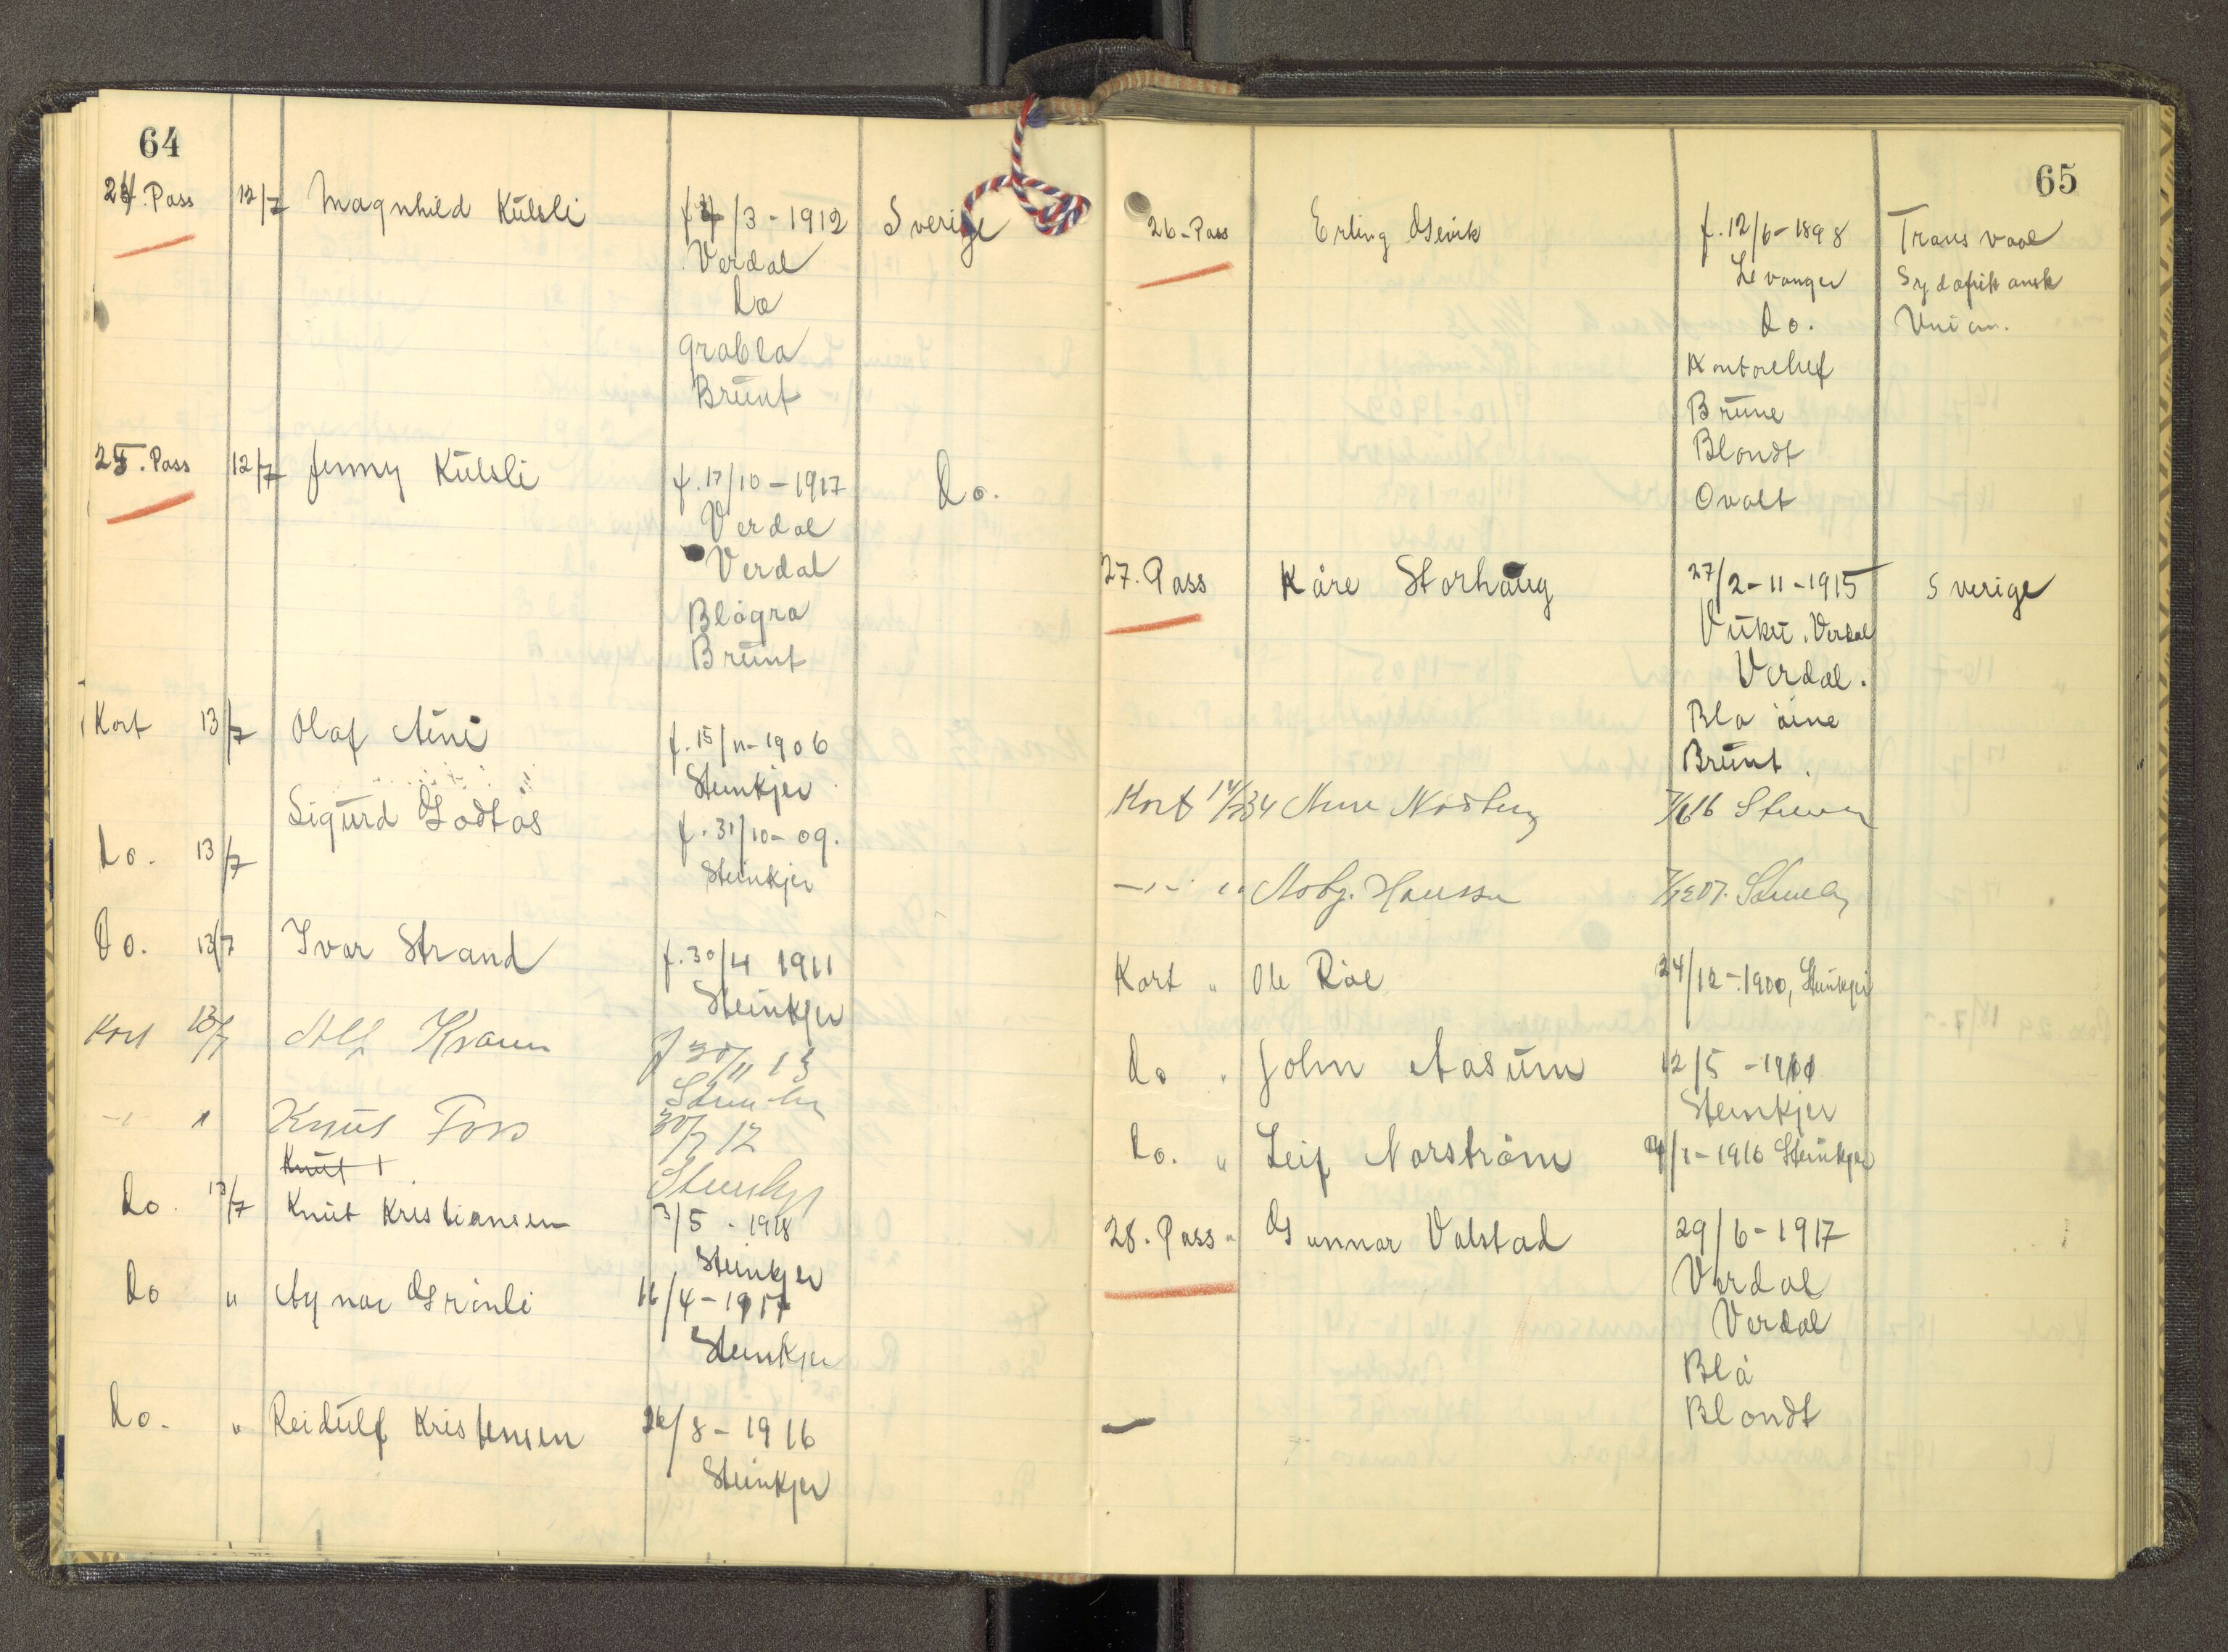 64
24. Pass 12/7 Magnhild Kulsli f 4/3-1912 Sverige
Verdal
do
gråblå
Brunt
25. Pass 12/7 Jenny Kulsli f. 17/10-1917 do.
Verdal
Verdal
Blågrå
Brunt
Kort 13/7 Olaf f. 15/11-1906
Steinkjer
do. 13/7 Sigurd f. 31/10-09.
Steinkjer
Do. 13/7 Ivar Strand f. 30/4 1911
Steinkjer
Kort 13/7 Alf f 30/11 13
Knut Foss 30/7 12
Knut
do. 13/7 Knut Kristiansen 3/5-1918
Steinkjer
do " Aynar Grönli 16/4-1917
Steinkjer
do. " Reidulf Kristensen 26/8-1916
Steinkjer
65
26-Pass Erling Gjevik f. 12/6-1898 Transvaal
Levanger Sydafrikansk
do. Union.
Kontorchef
Brune
Blondt
Ovalt
27. Pass Kåre Storhaug 27/2-11-1915 Sverige
Vuku. Verdal
Verdal.
Blå öine
Brunt.
Kort
Kort " Ole 24/12-1900, Steinkjer
do " John Aasum 12/5-1911
Steinkjer
do. " Leif Norström /1-1916 Steinkjer
28. Pass " Gunnar Volstad 29/6-1917
Verdal
Verdal
Blå
Blondt